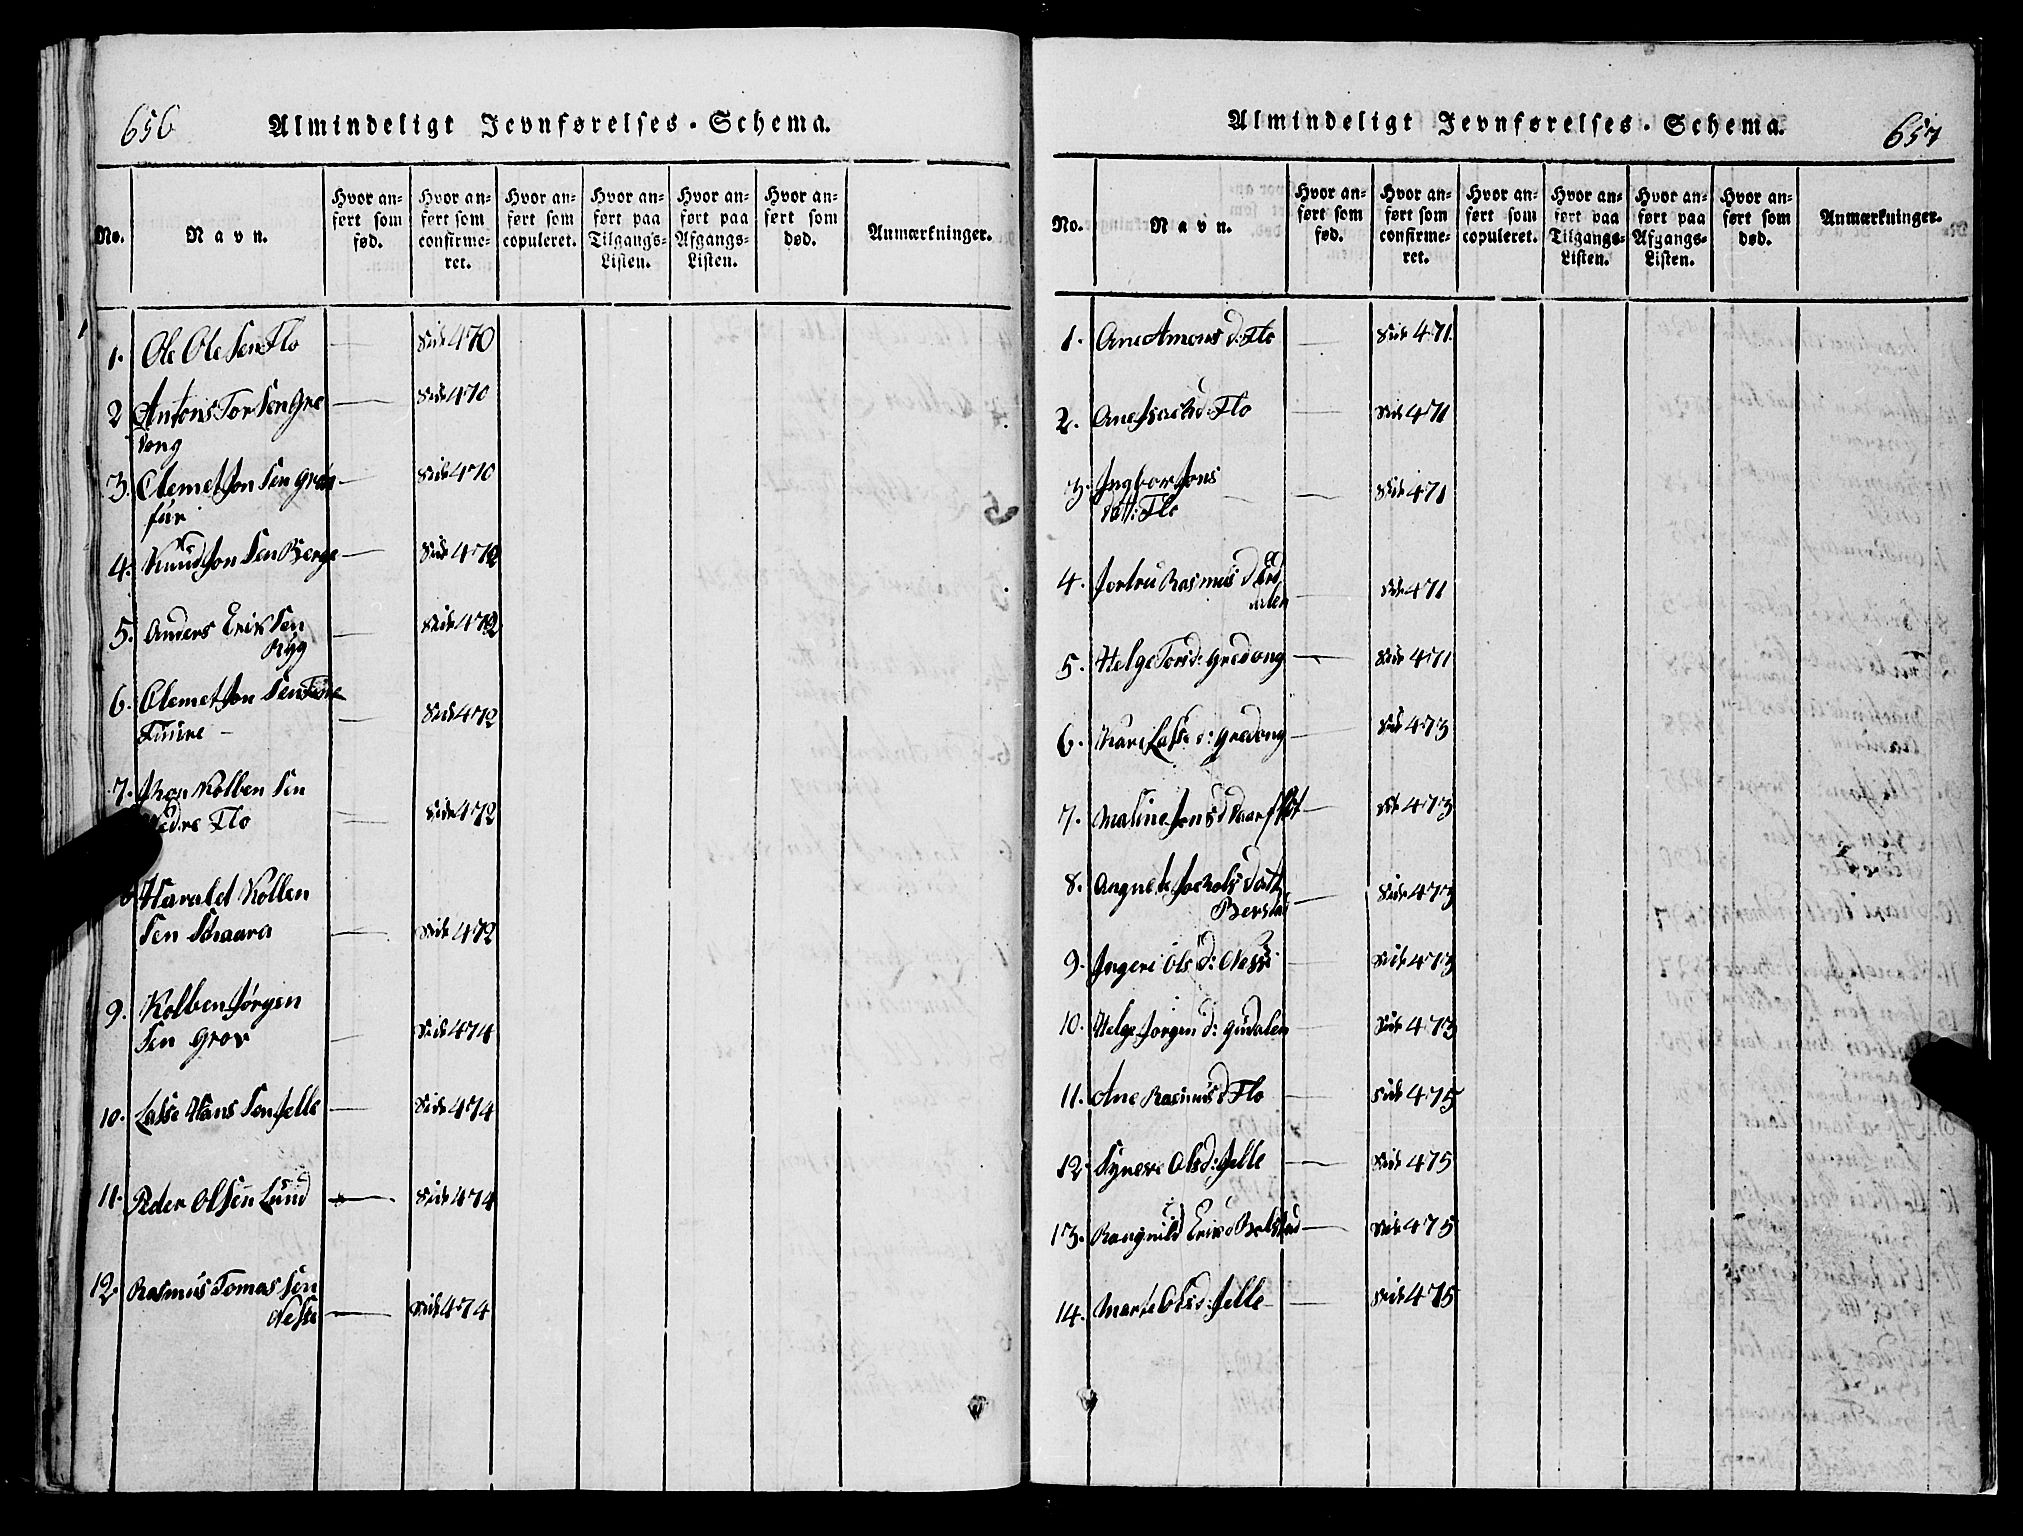 656
Almindeligt Jevnførelses-Schema.
No.
Navn.
Hvor anført som fød.
Hvor anført som confirmeret.
Hvor anført som copuleret.
Hvor anført paa Tilgangs-Listen.
Hvor anført paa Afgangs-Listen.
Hvor anført som død.
Anmærkninger.
1. Ole Ole Sen Flo — Side 470
2 Antons Tor Sen Gre — Side 470
dong
3. Clemet Jon Sen — Side 470
4. Knud Jon Sen Berge — Side 472
5. Anders Erik Sen — Side 472
Ryg
6. Clemet Jon Sen
— Side 472
7. Kolben Sen
Nedre Flo — Side 472
Harald Kolben
Sen Skaara — Side 472
9. Kolben Jørgen
Sen Grov — Side 474
10. Lasse Hans Sen Jelle — Side 474
11. Peder Olsen Lund — Side 474
12. Rasmus Tomas Sen
Nesse — Side 474
Almindeligt Jevnførelses-Schema.
657
No.
Navn.
Hvor anført som fød.
Hvor anført som confirmeret.
Hvor anført som copuleret.
Hvor anført paa Tilgangs-Listen.
Hvor anført paa Afgangs-Listen.
Hvor anført som død.
Anmærkninger.
1. Ane Amons d: Flo — Side 471.
2. Ane d: Flo — Side 471
3. Ingbor Jons
datt: Flo — Side 471
4. Jortru Rasmus d — Side 471
5. Helge Tors d: Gredong — Side 471
6. Kari Lasse d: Gredong — Side 473
7. Maline Jons d — Side 473
8. Angnete Jackobs datt — Side 473
Berstad
9. Ingeri Ols d: Nesse — Side 473
10. Helge Jorgen d: Gudalen — Side 473
11. Ane Rasmus d Flo — Side 475
12. Syneve Ols d: Jelle — Side 475
13. Rangnild Erik d — Side 475
14. Marte Ols d: Jelle — Side 475